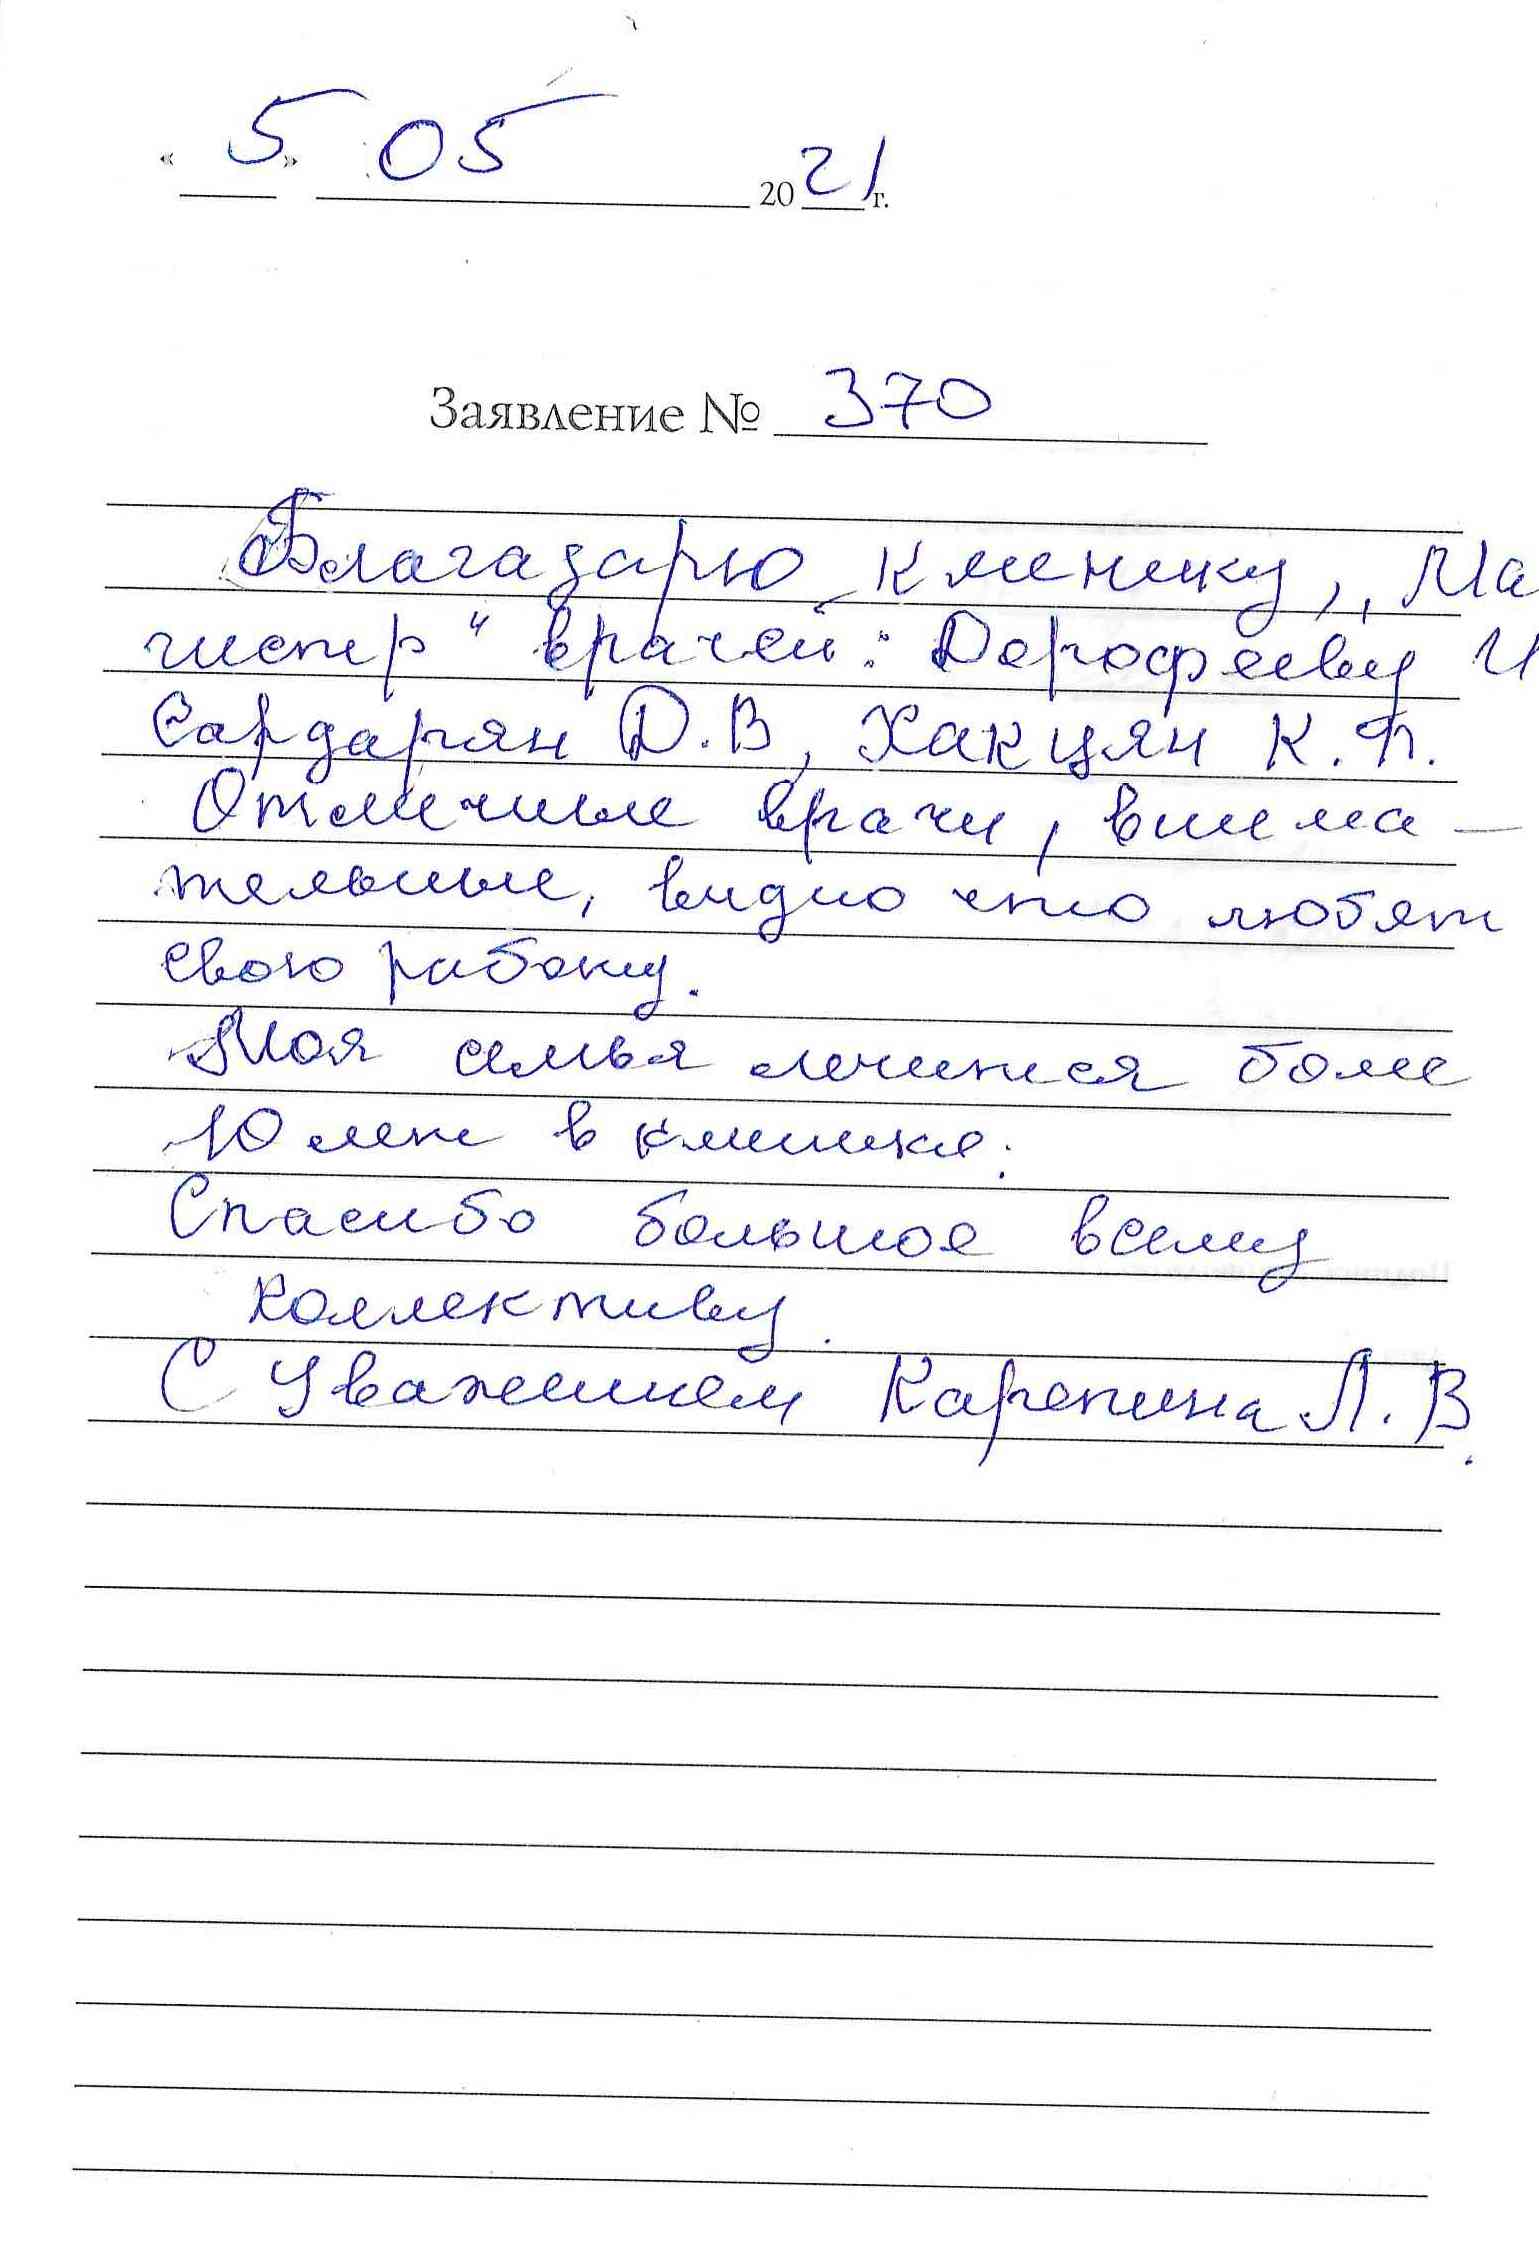 « 5 » 05 2021 г.
Заявление № 370
Благадарю клинику ,, Ма
гистр " врачей: Дорофееву И
Сардарян Д.В, Хакцян К.Ф.
Отличные врачи, внима -
тельные, видно что любят
свою работу.
Моя семья лечится более
10 лет в клинике.
Спасибо большое всему
коллективу.
С Уважением Карепина Л.В.